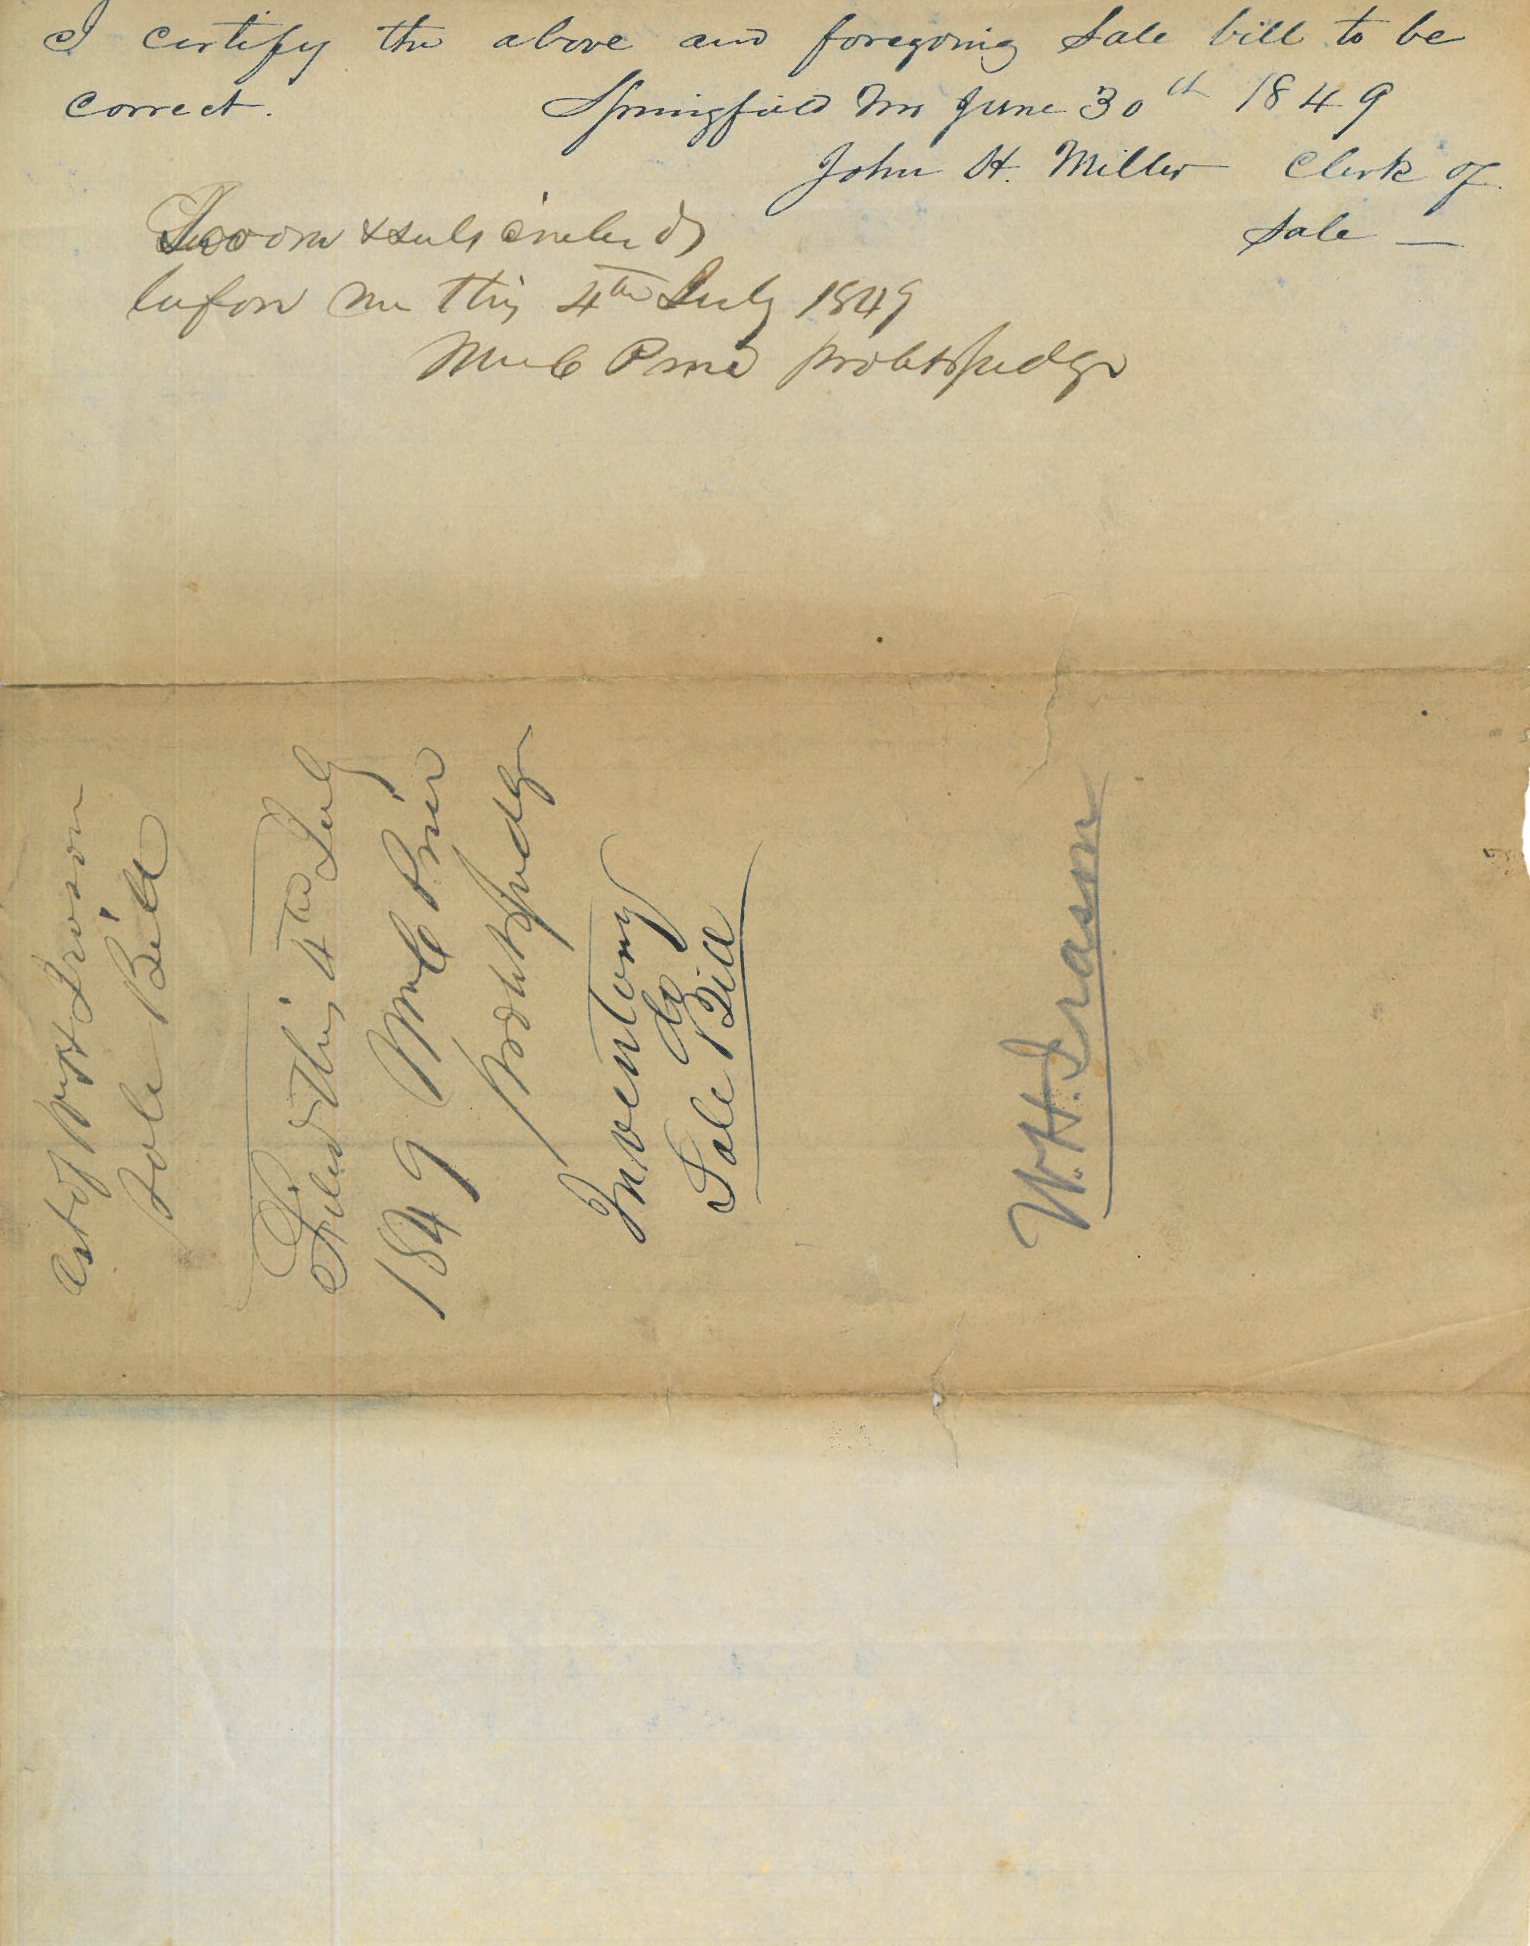 I certify the above and foregoing Sale bill to be
correct. Springfield Mo June 30th 1849
John H. Miller Clerk of
Sale —
Sworn & subscribed
before me this 4th July 1849
Wm C Price probt Judge
Est of Wm H Irason
Sale Bill
Filed this 4th July
1849 Wm C Price
Probt Judge
Inventory
&
Sale Bill
W. H. Irason